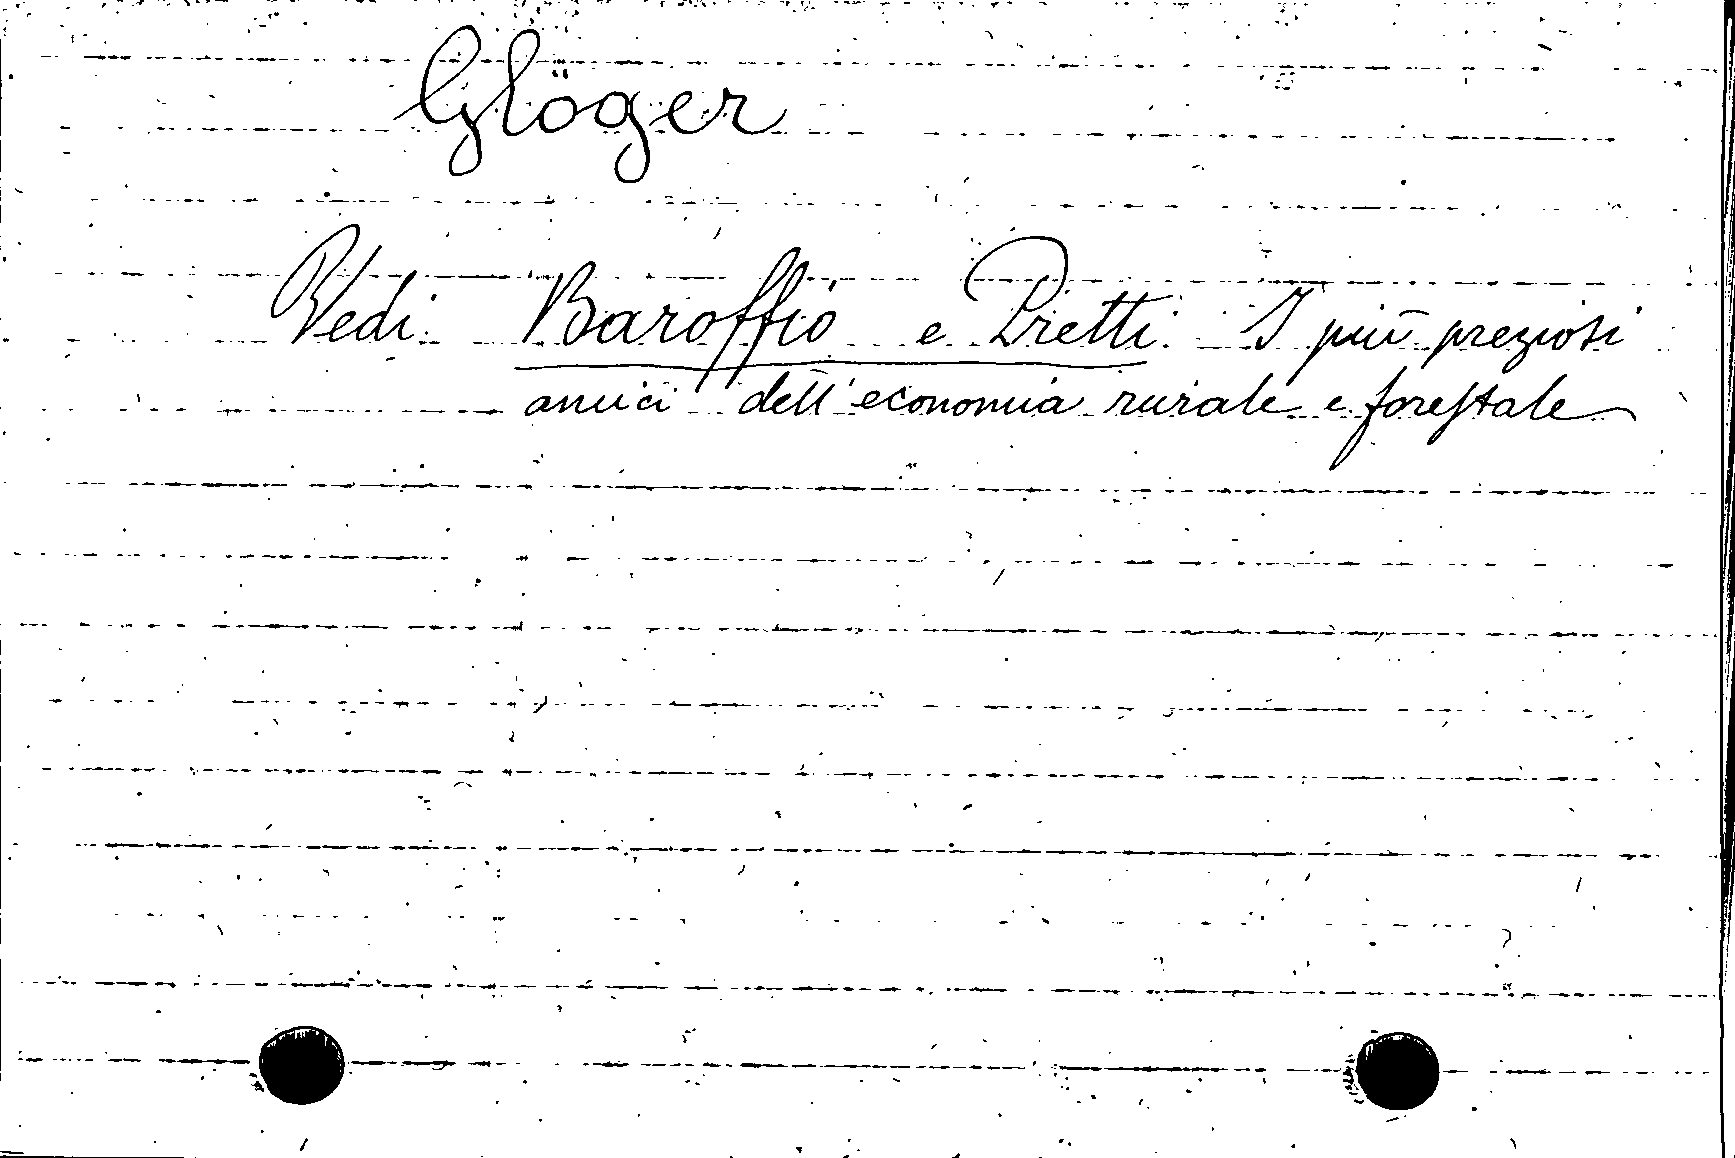 Glöger
Vedi Baroffio e Pietti. I più preziosi
amici dell'economia rurale e forestale